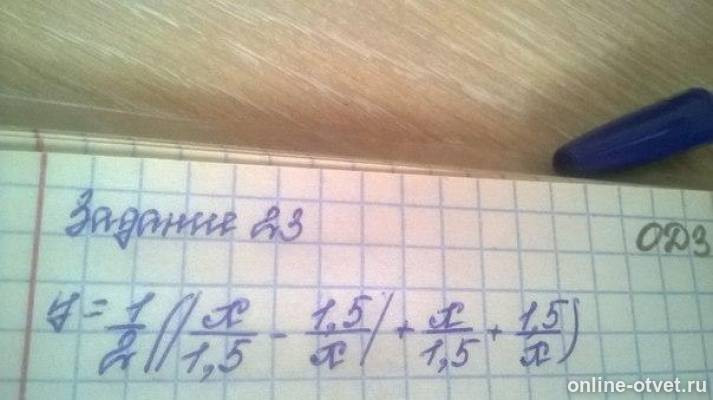 Задание 23
ОДЗ
y = 1/2 (|x/1,5 - 1,5/x| + x/1,5 + 1,5/x)
online-otvet.ru